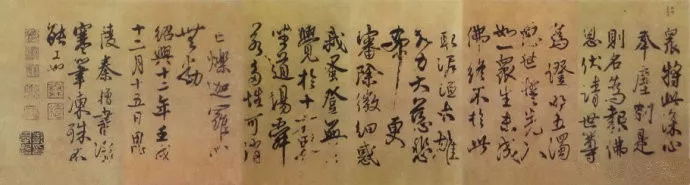 眾將此深心
奉塵剎是
則名為報佛
恩伏請世尊
為證明五濁
惡世誓先入
如一眾生未成
佛終不於此
取泥洹大雄
大力大慈悲
希更
審除微細惑
我蚤登無上
覺於十方界
坐道場舜
若多性可銷
亡爍迦羅心
無動
紹興十二年壬戌
十二月十五日思
陵秦檜書
寒筆凍殊不
能工也